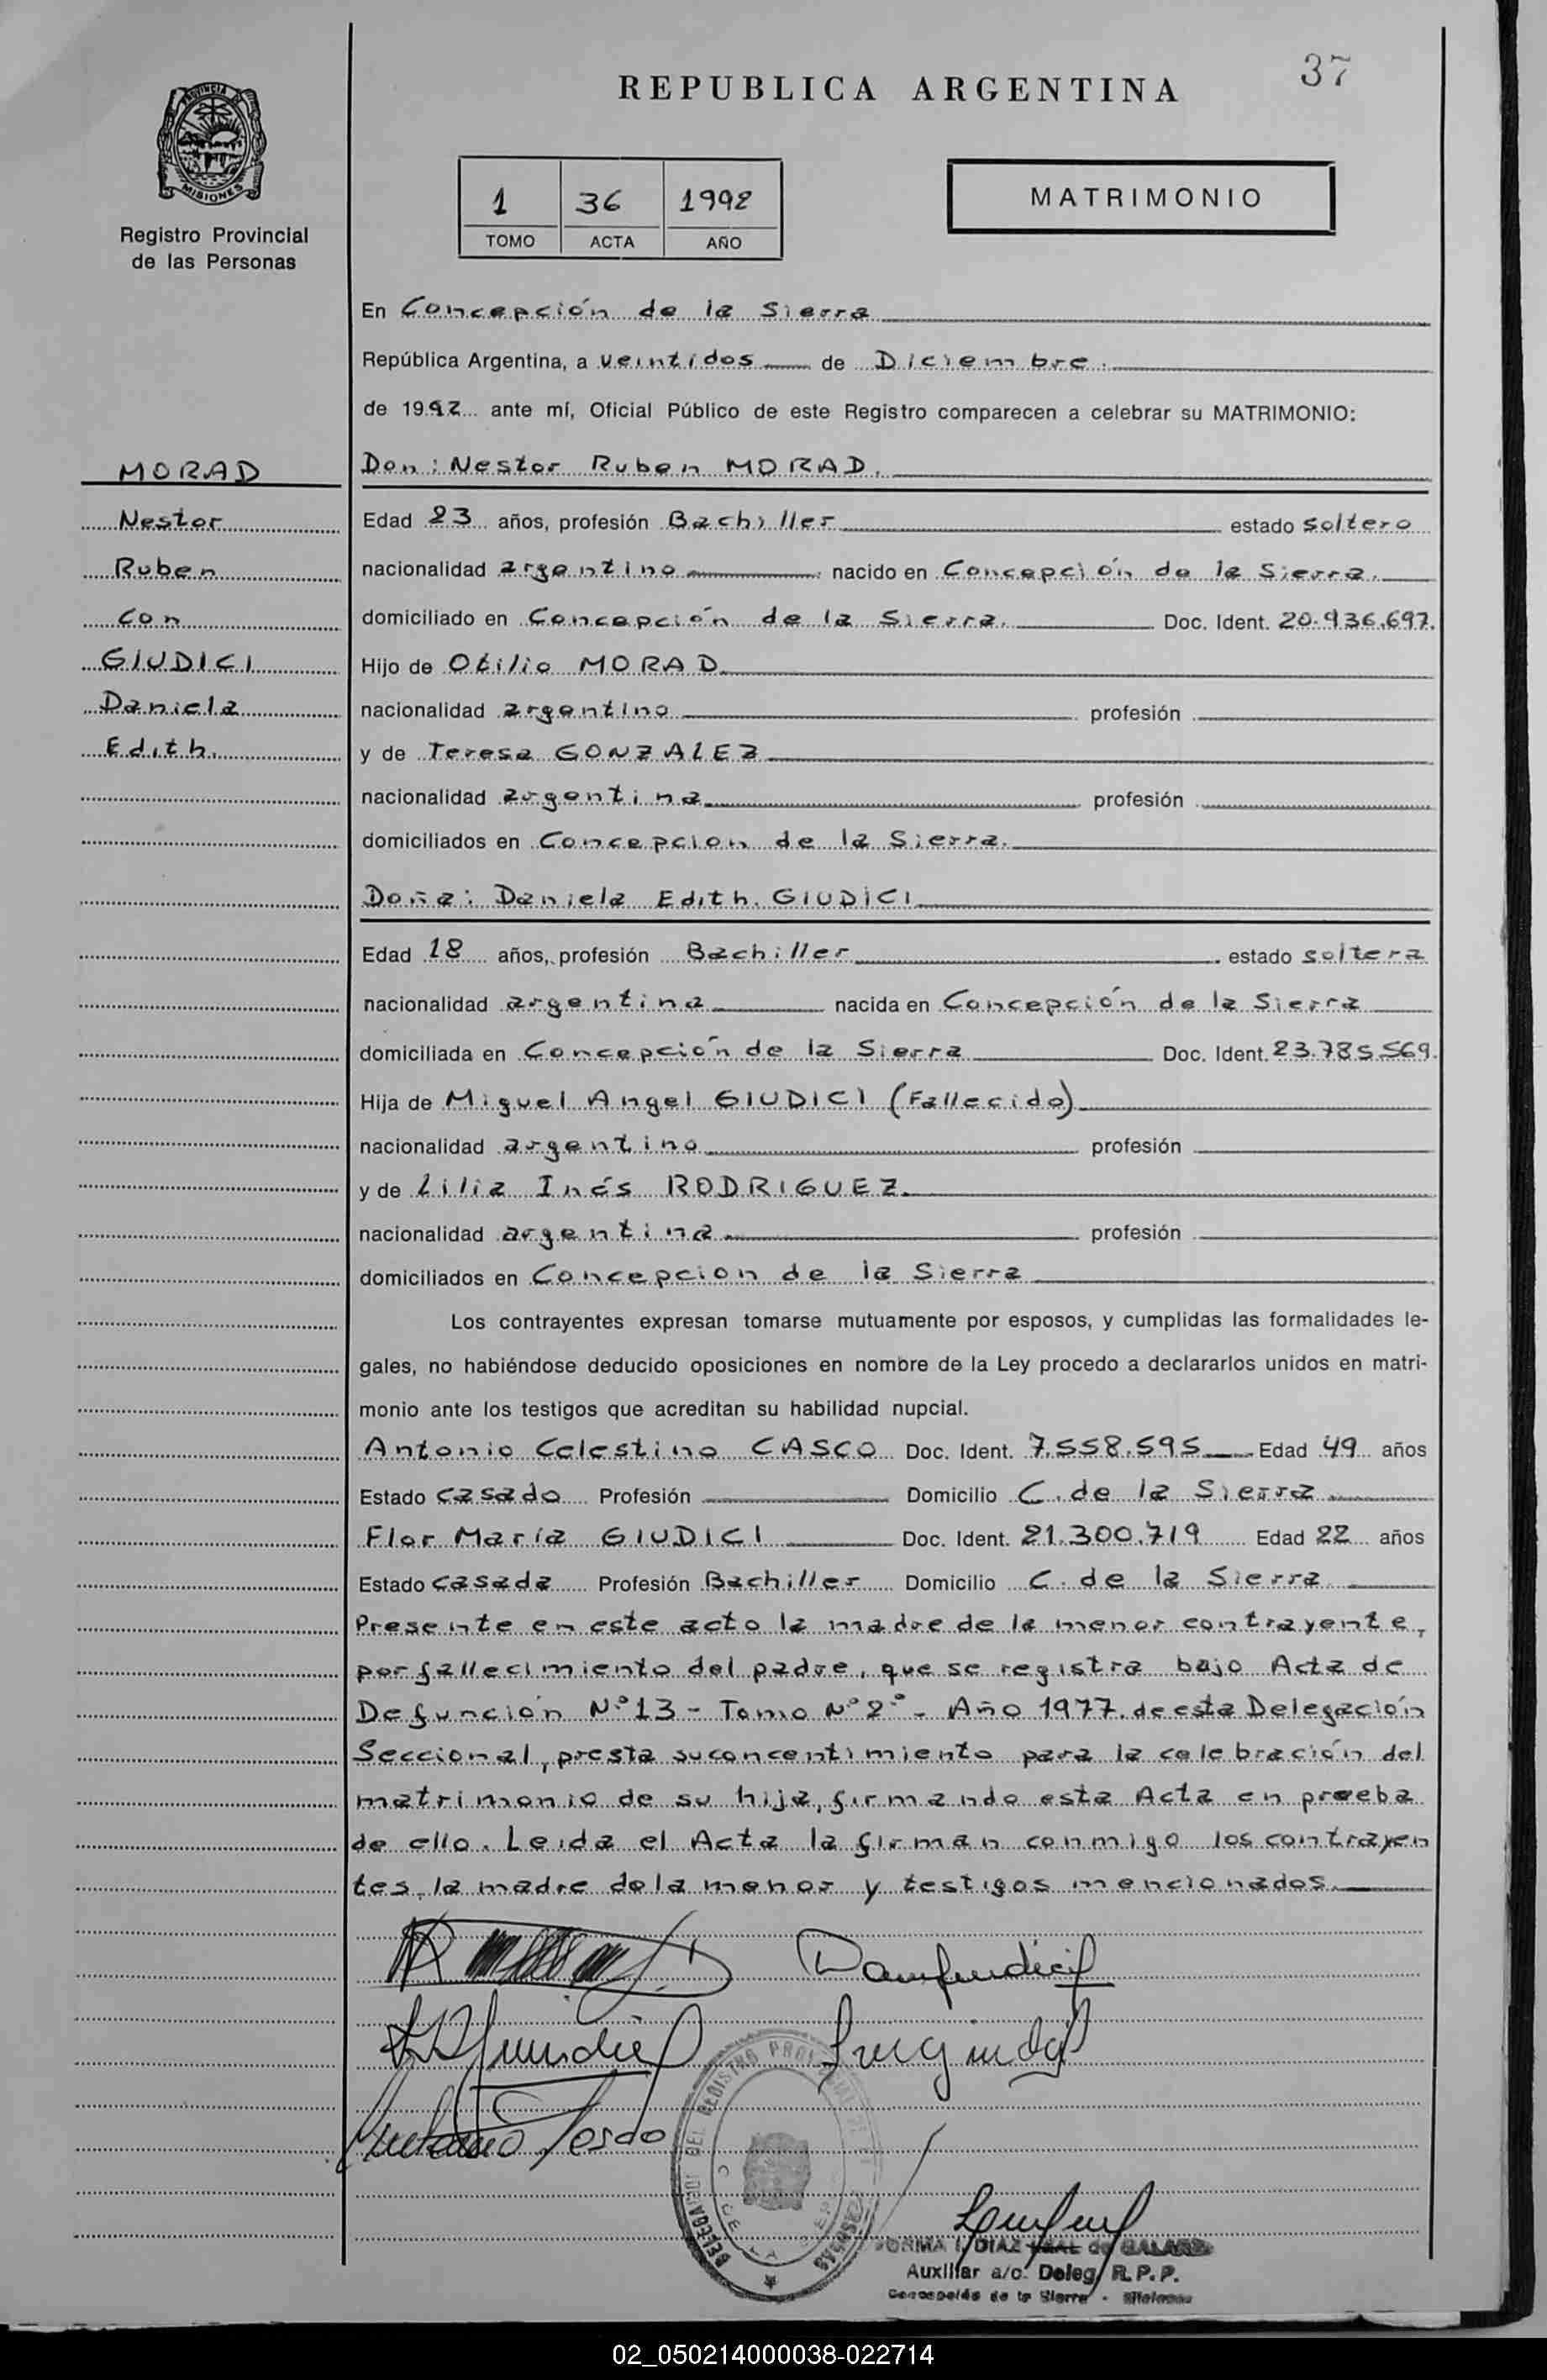 37
REPUBLICA ARGENTINA
PROVINCIA
MISIONES
Registro Provincial
de las Personas
1 36 1992
TOMO ACTA AÑO
MATRIMONIO
En Concepción de la Sierra
República Argentina, a veintidos de Diciembre.
de 1992 ante mí, Oficial Público de este Registro comparecen a celebrar su MATRIMONIO:
MORAD
Don: Nestor Ruben MORAD.
Nestor
Edad 23 años, profesión Bachiller estado soltero
Ruben
nacionalidad argentino nacido en Concepción de la Sierra.
con
domiciliado en Concepción de la Sierra. Doc. Ident. 20.936.697.
GIUDICI
Hijo de Otilio MORAD
Daniela
nacionalidad argentino profesión
Edith.
y de Teresa GONZALEZ
nacionalidad argentina profesión
domiciliados en Concepcion de la Sierra.
Doña: Daniela Edith. GIUDICI
Edad 18 años, profesión Bachiller estado soltera
nacionalidad argentina nacida en Concepción de la Sierra
domiciliada en Concepción de la Sierra Doc. Ident. 23.785.569.
Hija de Miguel Angel GIUDICI (Fallecido)
nacionalidad argentino profesión
y de Lilia Inés RODRIGUEZ.
nacionalidad argentina profesión
domiciliados en Concepcion de la Sierra
Los contrayentes expresan tomarse mutuamente por esposos, y cumplidas las formalidades le-
gales, no habiéndose deducido oposiciones en nombre de la Ley procedo a declararlos unidos en matri-
monio ante los testigos que acreditan su habilidad nupcial.
Antonio Celestino CASCO Doc. Ident. 7.558.595 Edad 49 años
Estado casado Profesión Domicilio C. de la Sierra
Flor María GIUDICI Doc. Ident. 21.300.719 Edad 22 años
Estado casada Profesión Bachiller Domicilio C. de la Sierra
Presente en este acto la madre de la menor contrayente,
por fallecimiento del padre, que se registra bajo Acta de
Defunción N°13 - Tomo N°2° - Año 1977. de esta Delegación
Seccional, presta su concentimiento para la celebración del
matrimonio de su hija, firmando esta Acta en prueba
de ello. Leida el Acta la firman conmigo los contrayen
tes, la madre dela menor y testigos mencionados.
DEL REGISTRO
DIAZ de
Auxiliar a/c. Deleg. R.P.P.
Concepción de la Sierra - Misiones
02_050214000038-022714